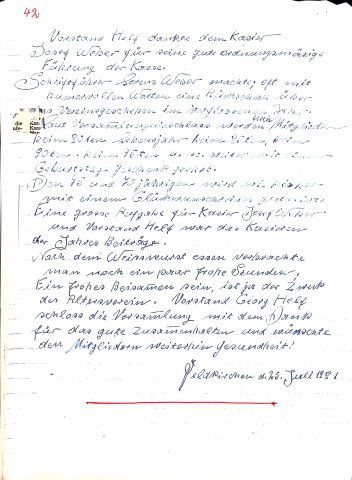 42
Vorstand Helf dankte dem Kasier
Josef Weber für seine gute ordnungsmäsige
Führung der Kasse.
Schriftführer Lorenz Weber machte, oft mit
humorvollen Worten eine Rückschau über
das Vereinsgeschehen im verflossenen Jahr.
Laut Versammlungsbeschluss werden Mitglieder
beim 80ten Lebensjahr beim 85ten, beim
90ten. beim 95ten u. so weiter mit ein
Geburtstags Geschenk geehrt.
Den 70 und 75 jährigen wird wie bisher
mit einem Glückwunschschreiben gratuliert.
Eine grosse Aufgabe für Kasier Josef Weber
und Vorstand Helf war das Kasieren
der Jahres Beiträge.
Nach dem Weisswurst essen verbrachte
man noch ein paar frohe Stunden.
Ein frohes Beisamen sein, ist ja der Zweck
des Altersverein. Vorstand Georg Helf
schloss die Versamlung mit dem Dank
für das gute Zusammenhalten und wünschte
den Mitgliedern weiterhin Gesundheit!
Feldkirchen d. Juli 1981